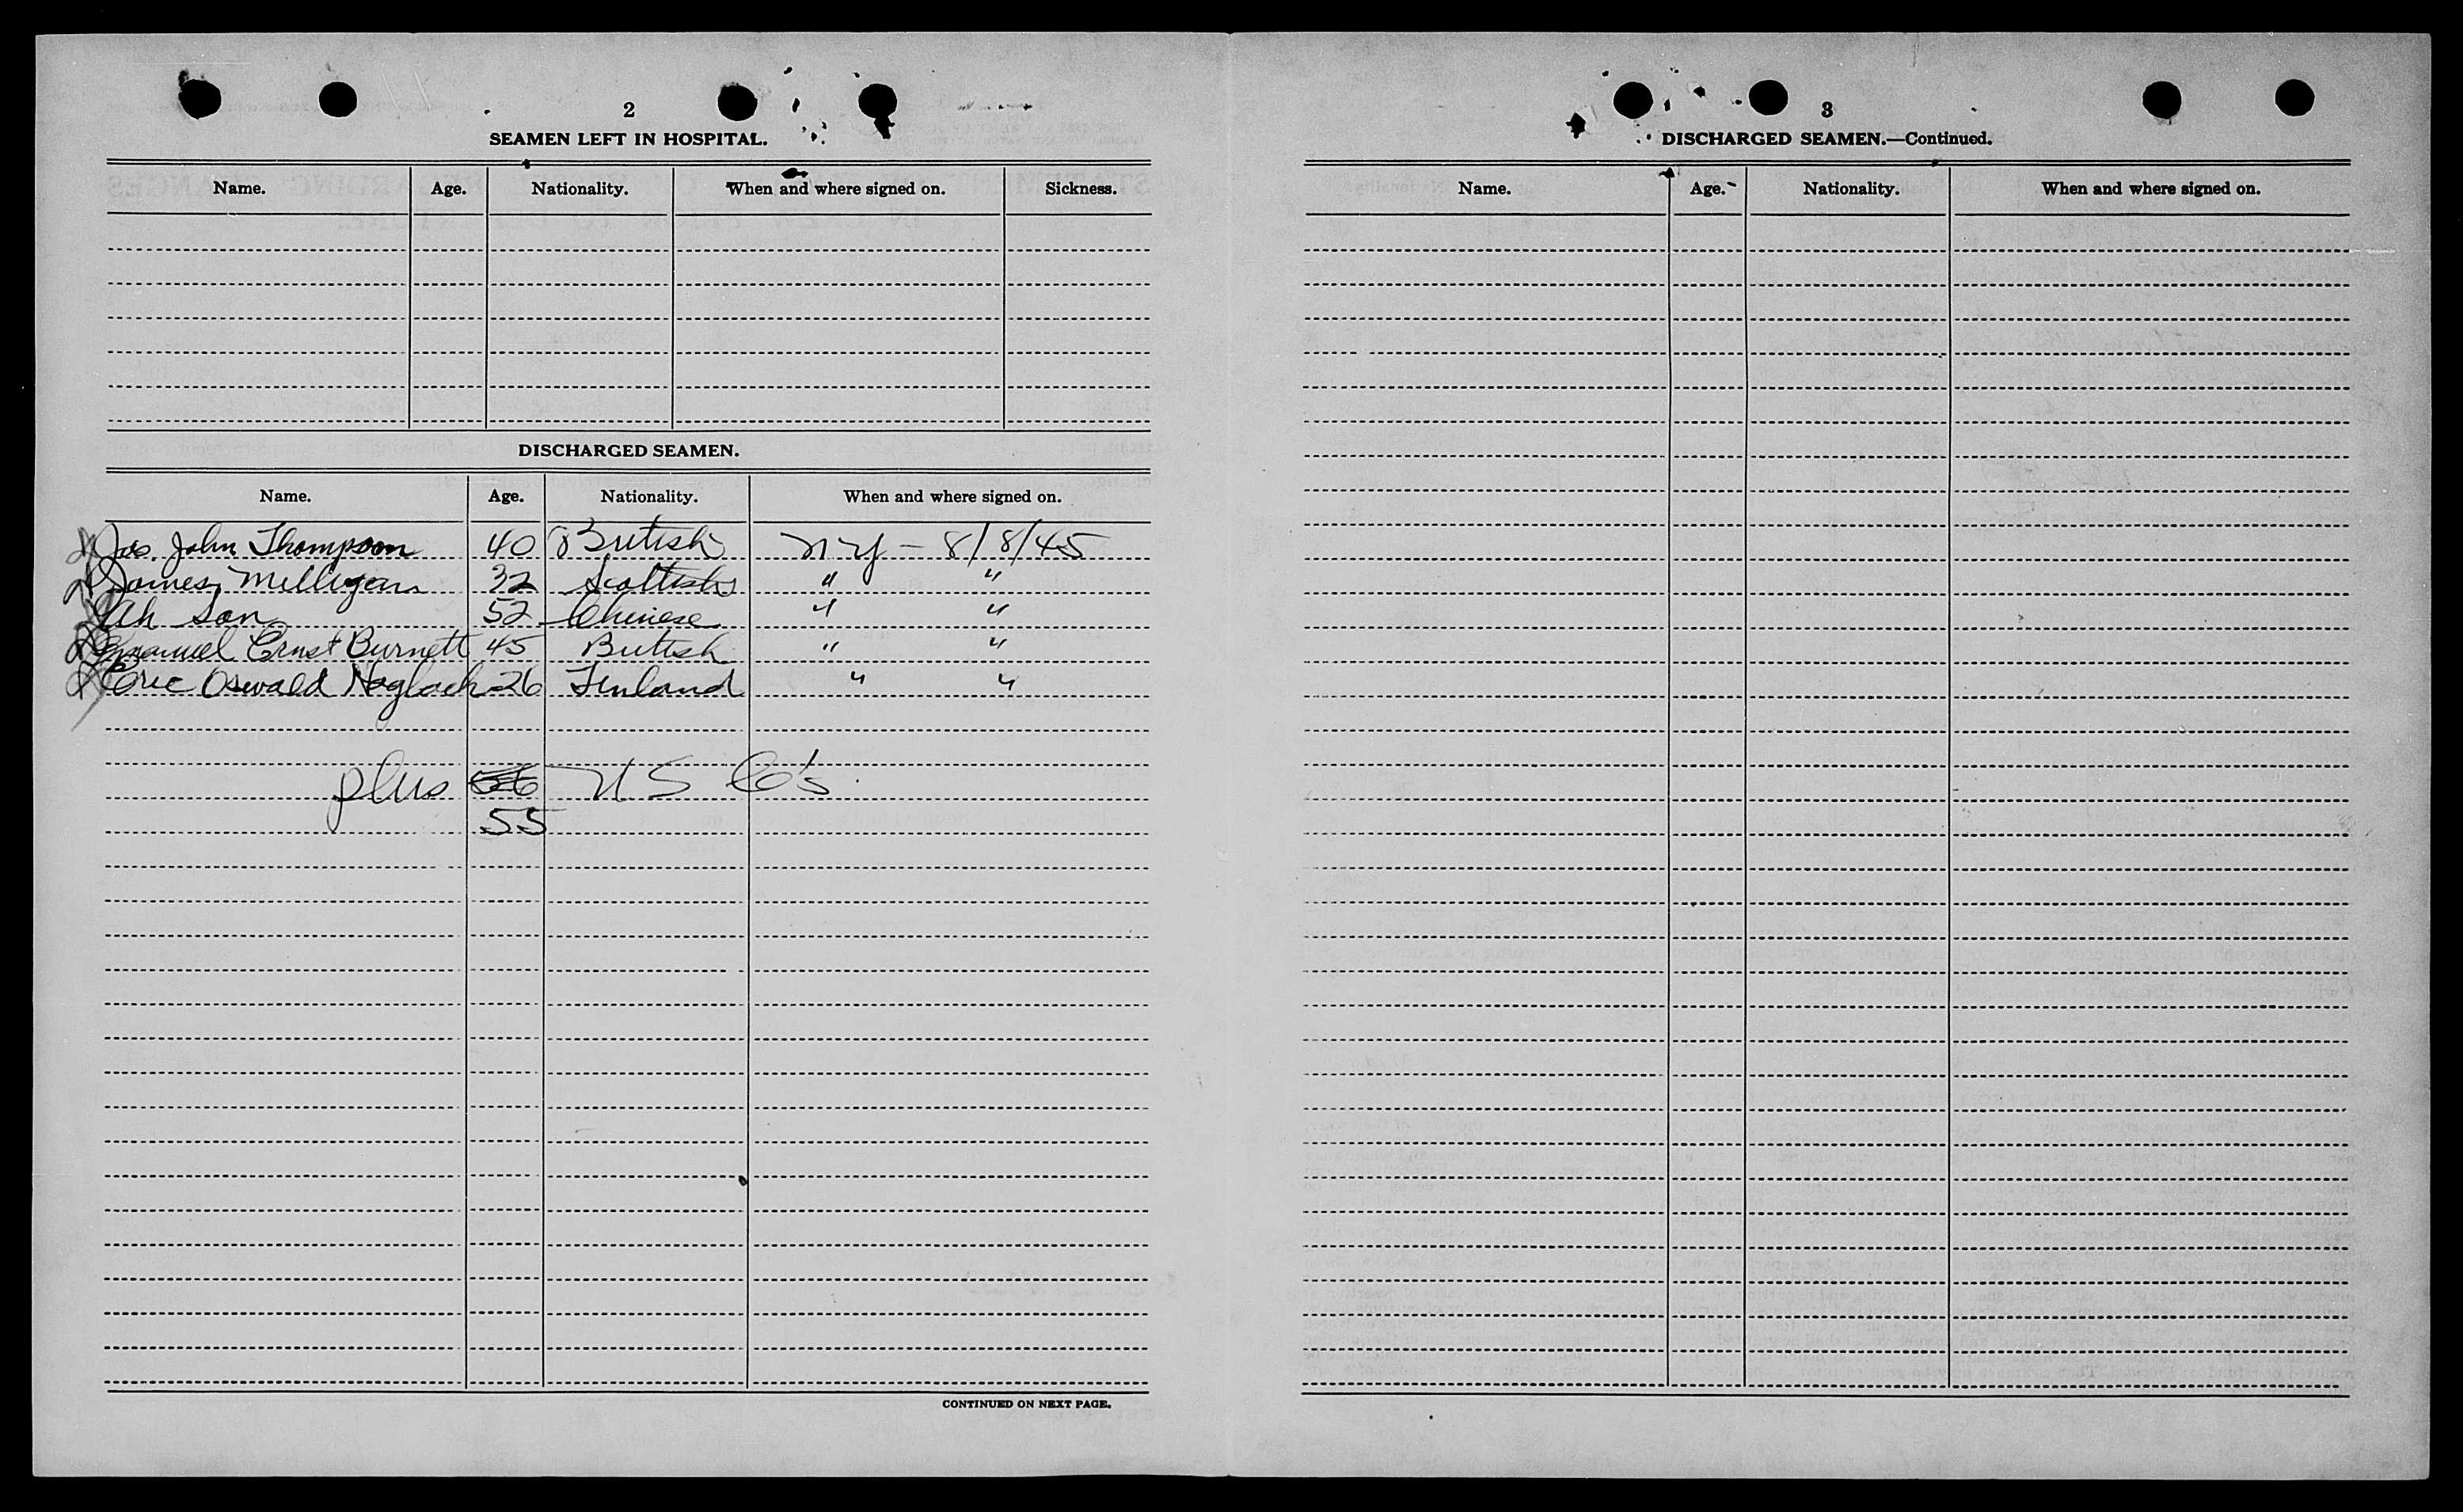 2
SEAMEN LEFT IN HOSPITAL.
Name. Age. Nationality. When and where signed on. Sickness.
DISCHARGED SEAMEN.
Name. Age. Nationality. When and where signed on.
Jas. John Thompson 40 British NY - 8/8/45
James Milligan 32 Scottish " "
Ah Son 52 Chinese " "
Emanuel Ernst Burnett 45 British " "
Eric Oswald 26 Finland " "
plus 56 US Co's.
55
CONTINUED ON NEXT PAGE.
3
DISCHARGED SEAMEN.—Continued.
Name. Age. Nationality. When and where signed on.